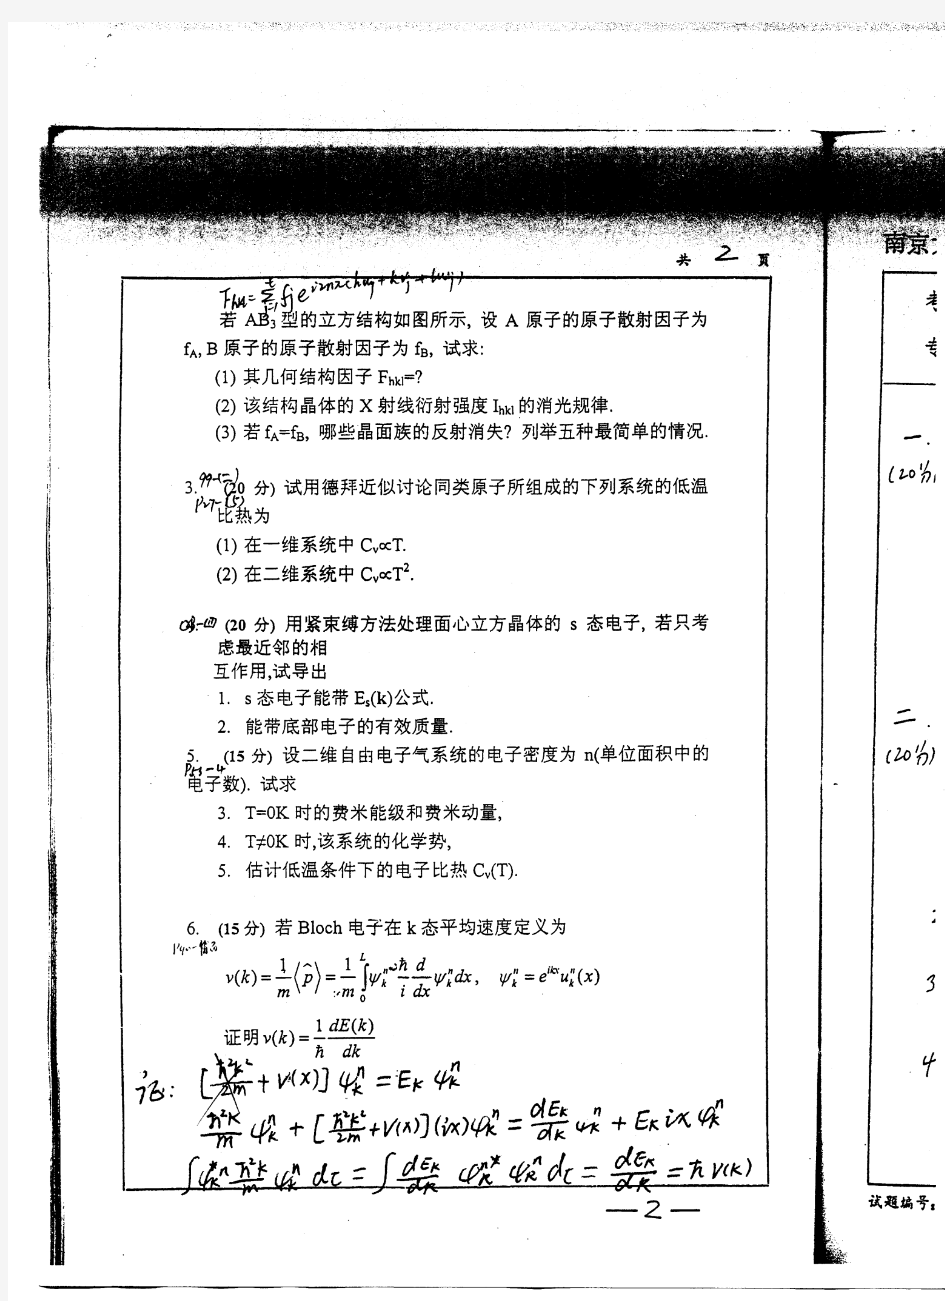 共 2 页
南京
F_{hkl}=\sum f_j e^{i2\pi n(hu_j+kv_j+lw_j)}
若 AB₃ 型的立方结构如图所示, 设 A 原子的原子散射因子为
f_A, B 原子的原子散射因子为 f_B, 试求:
(1) 其几何结构因子 F_{hkl}=?
(2) 该结构晶体的 X 射线衍射强度 I_{hkl} 的消光规律.
(3) 若 f_A=f_B, 哪些晶面族的反射消失? 列举五种最简单的情况.
99-(二)
3. (20 分) 试用德拜近似讨论同类原子所组成的下列系统的低温
P27-(5)
比热为
(1) 在一维系统中 C_v∝T.
(2) 在二维系统中 C_v∝T².
(20 分) 用紧束缚方法处理面心立方晶体的 s 态电子, 若只考
虑最近邻的相
互作用,试导出
1. s 态电子能带 E_s(k)公式.
2. 能带底部电子的有效质量.
5. (15 分) 设二维自由电子气系统的电子密度为 n(单位面积中的
电子数). 试求
3. T=0K 时的费米能级和费米动量,
4. T≠0K 时,该系统的化学势,
5. 估计低温条件下的电子比热 C_v(T).
6. (15 分) 若 Bloch 电子在 k 态平均速度定义为
v(k)=\frac{1}{m}\langle\hat{p}\rangle=\frac{1}{m}\int_0^L ψ_k^{n*}\frac{ħ}{i}\frac{d}{dx}ψ_k^n dx, ψ_k^n=e^{ikx}u_k^n(x)
证明 v(k)=\frac{1}{ħ}\frac{dE(k)}{dk}
证: [\frac{ħ²k²}{2m}+V(x)]ψ_k^n=E_kψ_k^n
\frac{ħ²k}{m}ψ_k^n+[\frac{ħ²k²}{2m}+V(x)](ix)φ_k^n=\frac{dE_k}{dk}ψ_k^n+E_k ix φ_k^n
∫ψ_k^{*n}\frac{ħ²k}{m}ψ_k^n dτ=∫\frac{dE_k}{dk}ψ_k^{n*}ψ_k^n dτ=\frac{dE_k}{dk}=ħv(k)
—2—
一.
(20分)
二.
(20分)
3
4
试题编号: